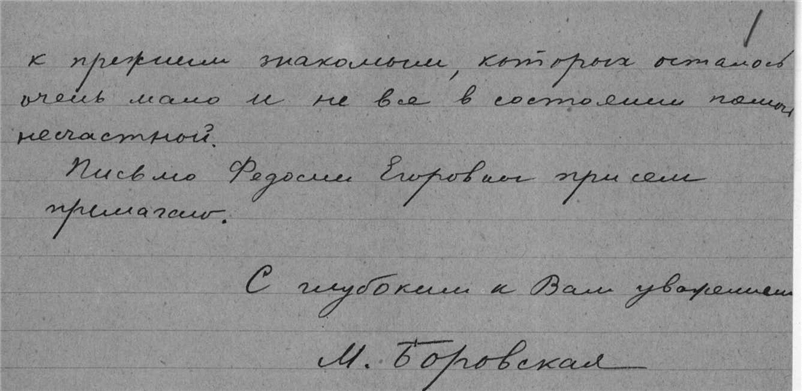 к прежним знакомым, которых осталось
очень мало и не все в состоянии помочь
несчастной.
Письмо Федосии Егоровны при сем
прилагаю.
С глубоким к Вам уважением
М. Боровская